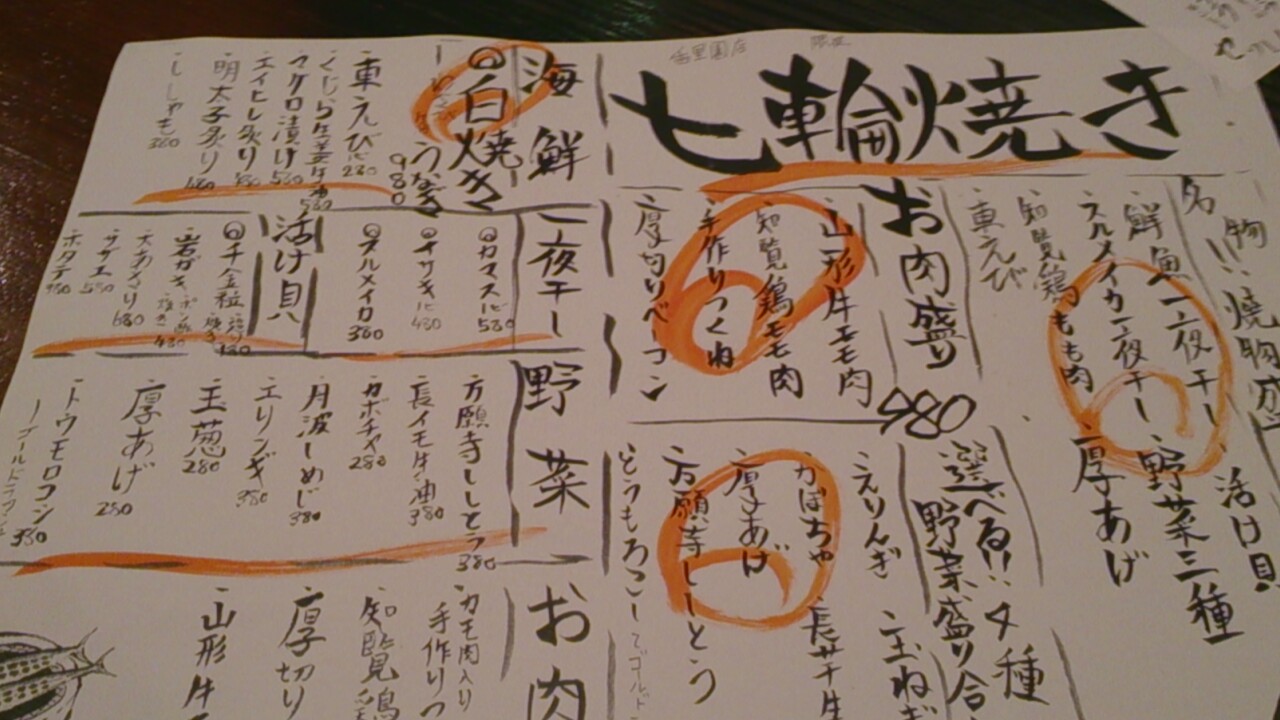 香里園店
七輪焼き
名物!!焼物盛
鮮魚一夜干し
スルメイカ一夜干し
知覧鶏もも肉
東えび
活け貝
野菜三種
厚あげ
お肉盛り
980
・山形牛モモ肉
・知覧鶏モモ肉
・手作りつくね
・厚切りベーコン
選べる!!4種
野菜盛り合
・えりんぎ
・かばちゃ
・厚あげ
・万願寺しーとう
とうもろこし
海鮮
◎白焼き
うなぎ
980
・東えび 280
・くじら生姜醤油 580
・マグロ漬け 580
・エイヒレ炙り
・明太子炙り 480
・ししゃも 360
一夜干し
◎カマス 580
◎イサキ 480
◎スルメイカ 380
活け貝
◎千金粒
・岩ガキ ポン酢 焼き 480
・大あさり 680
・サザエ 580
・ホタテ
野菜
・万願寺ししとう 380
・長イモ生油 380
・カボチャ 280
・月波しめじ 380
・エリンギ 380
・玉葱 280
・厚あげ 280
・トウモロコシ 380
お肉
・カモ肉入り
手作りつ
・知覧鶏
・厚切り
・山形牛